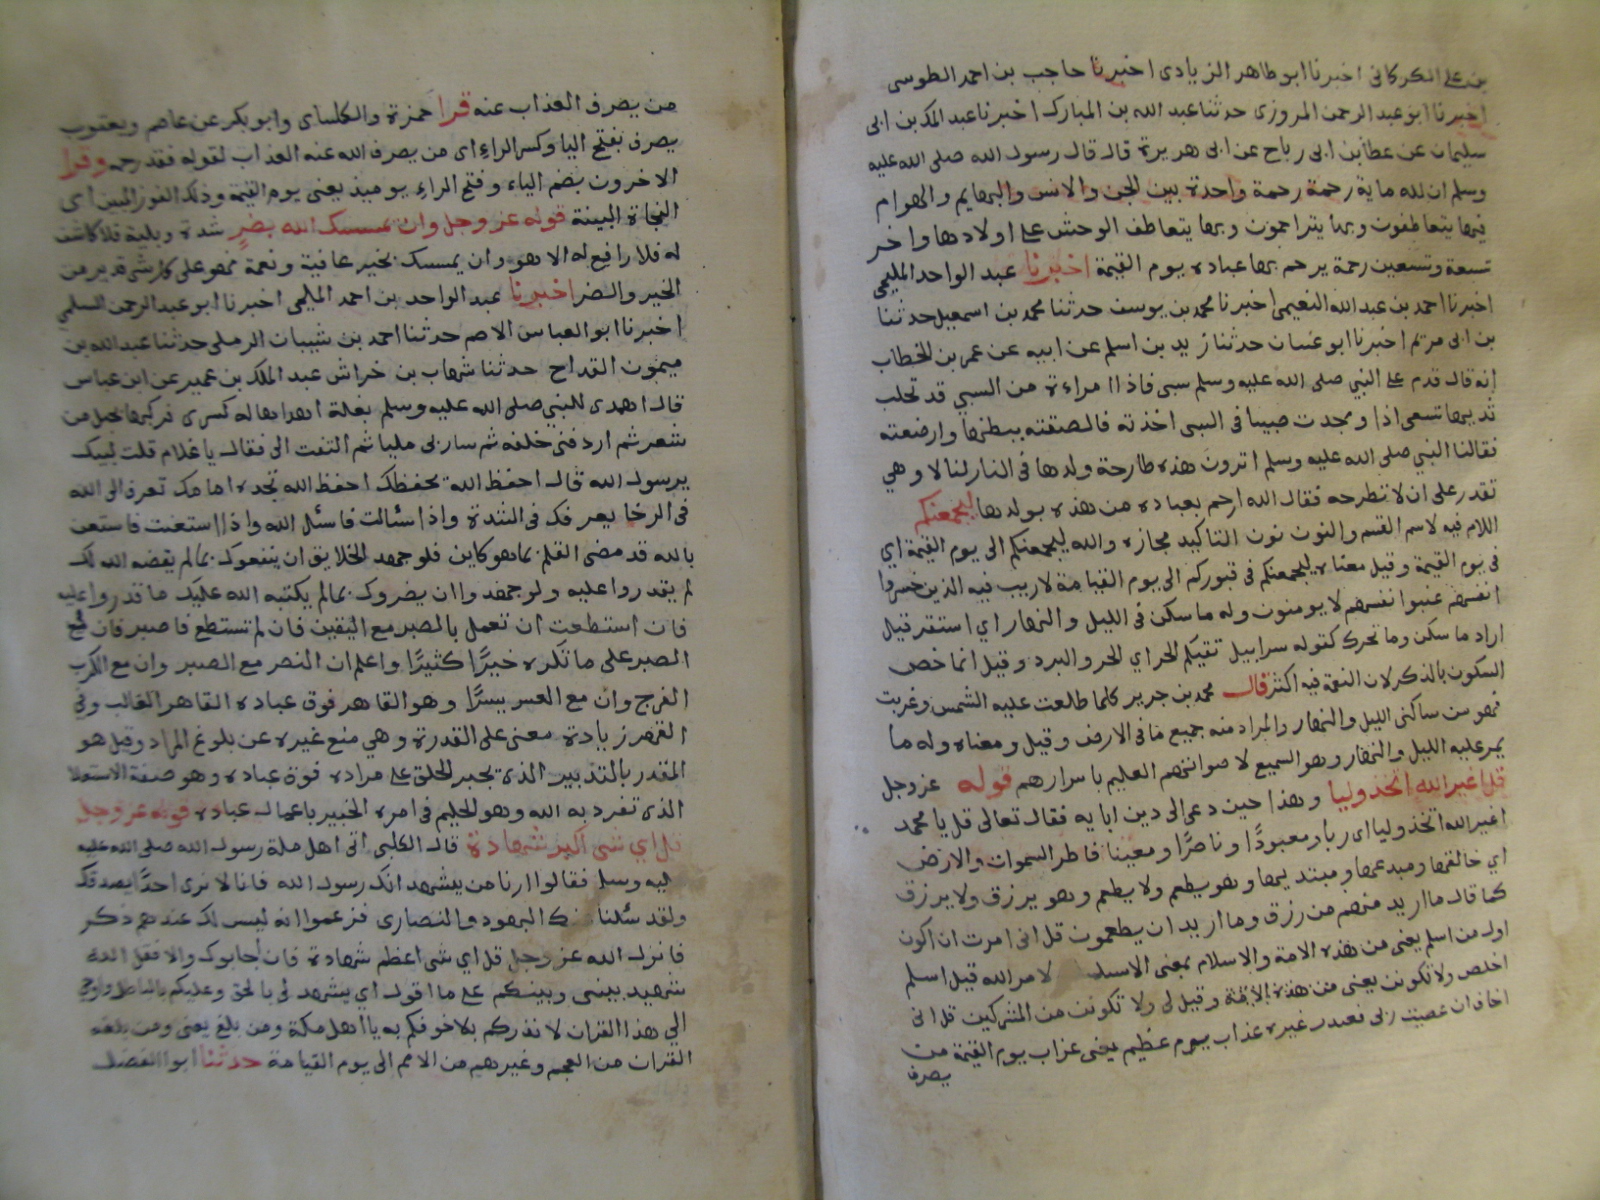 بن علي الكركانى اخبرنا ابو طاهر الزيادى اخبرنا حاجب بن احمد الطوسى
اخبرنا ابو عبد الرحمن المروزى حدثنا عبد الله بن المبارك اخبرنا عبد الملك بن ابى
سليمان عن عطا بن ابى رباح عن ابى هريرة قال قال رسول الله صلى الله عليه
وسلم ان لله ماية رحمة رحمة واحدة بين الجن والانس والبهايم والهوام
فبها يتعاطفون وبها يتراحمون وبها يتعاطف الوحش على اولادها واخر
تسعة وتسعين رحمة يرحم بها عباده يوم القيمة اخبرنا عبد الواحد المليحى
اخبرنا احمد بن عبد الله النعيمى اخبرنا محمد بن يوسف حدثنا محمد بن اسمعيل حدثنا
بن ابى مريم اخبرنا ابو غسان حدثنا زيد بن اسلم عن ابيه عن عمر بن الخطاب
انه قال قدم على النبي صلى الله عليه وسلم سبى فاذا امراءة من السبي قد تحلب
ثديها تسعى اذا وجدت صبيا فى السبى اخذته فالصقته ببطنها وارضعته
فقال لنا النبي صلى الله عليه وسلم اترون هذه طارحة ولدها فى النار لنا لا وهي
تقدر على ان لا تطرحه فقال الله ارحم بعباده من هذه بولدها ليجمعنكم
اللام فيه لاسم القسم والنون نون التاكيد مجازه والله ليجمعنكم الى يوم القيمة اي
فى يوم القيمة وقيل معناه ليجمعنكم فى قبوركم الى يوم القيامة لا ريب فيه الذين خسروا
انفسهم غبنوا انفسهم لا يومنون وله ما سكن فى الليل والنهار اي استقر قيل
اراد ما سكن وما تحرك كقوله سرابيل تقيكم الحر اي الحر والبرد وقيل انما خص
السكون بالذكر لان النعمة فيه اكثر قال محمد بن جرير كلما طلعت عليه الشمس وغربت
فهو من ساكنى الليل والنهار والمراد منه جميع ما فى الارض وقيل ومعناه وله ما
يمر عليه الليل والنهار وهو السميع لاصواتهم العليم باسرارهم قوله عز وجل
قل اغير الله اتخذ وليا وهذا حين دعى الى دين ابايه فقال تعالى قل يا محمد
اغير الله اتخذ وليا اى ربا ومعبودًا وناصرًا ومعينا فاطر السموات والارض
اي خالقها ومبدعها ومبتديها وهو يطعم ولا يطعم وهو يرزق ولا يرزق
كما قال ما اريد منهم من رزق وما اريد ان يطعمون قل انى امرت ان اكون
اول من اسلم يعنى من هذه الامة والاسلام بمعنى لامر الله قيل اسلم
اخلص ولا تكونن يعنى من هذه وقيل لى ولا تكونن من المشركين قل انى
اخاف ان عصيت ربى فعبدت غيره عذاب يوم عظيم يعنى عزاب يوم القيمة من
يصرف
من يصرف العذاب عنه قرا حمزة والكلساى وابو بكر عن عاصم ويعقوب
يصرف بفتح اليا وكسر الراء اى من يصرف الله عنه العذاب لقوله فقد رحمه وقرا
الاخرون بضم الياء وفتح الراء يوميذ يعنى يوم القيمة وذلك الفوز المبين اى
النجاة البينة قوله عز وجل وان يمسسك الله بضر شدة وبلية فلا كاشف
له فلا رافع له الا هو وان يمسسك بخير عافية ونعمة فهو على كل شى قدير من
الخير والضر اخبرنا عبد الواحد بن احمد المليحى اخبرنا ابو عبد الرحمن السلمي
اخبرنا ابو العباس الاصم حدثنا احمد بن شيبان الرملى حدثنا عبد الله بن
ميمون القداح حدثنا شهاب بن خراش عبد الملك بن عمير عن ابن عباس
قال اهدى للنبي صلى الله عليه وسلم بغلة اهداها له كسرى فركبها بحبل من
شعر ثم اردفنى خلفه ثم سار بى مليا ثم التفت الى فقال يا غلام قلت لبيك
يرسول الله قال احفظ الله يحفظك احفظ الله تجده امامك تعرف الى الله
فى الرخا يعرفك فى الشدة واذا سئالت فاسئل الله واذا استعنت فاستعن
بالله قد مضى القلم بما هو كاين فلو جهد الخلايق ان ينفعوك بما لم يقضه الله لك
لم يقدروا عليه ولو جهدوا ان يضروك بما لم يكتبه الله عليك ما قدروا عليه
فان استطعت ان تعمل بالصبر مع اليقين فان لم تستطع فاصبر فان فى
الصبر على ما تكره خيرًا كثيرًا واعلم ان النصر مع الصبر وان مع الكرب
الفرج وان مع العسر يسرًا وهو القاهر فوق عباده القاهر الغالب وفى
القهر زيادة معنى على القدرة وهي منع غيره عن بلوغ المراد وقيل هو
المقدر بالتدبير الذى يجبر الخلق على مراده فوق عباده وهو صفة الاستعلا
الذى تفرد به الله وهو الحليم فى امره الخبير باعمال عباده قوله عز وجل
قل اي شى اكبر شهادة قال الكلبى اتى اهل مكة رسول الله صلى الله عليه
ليه وسلم فقالوا ارنا من يشهد انك رسول الله فانا لا نرى احدًا يصدقك
ولقد سئلنا عنك اليهود والنصارى فزعموا انه ليس لك عندهم ذكر
فانزل الله عز وجل قل اي شى اعظم شهادة فان اجابوك والا فقل الله
شهيد بينى وبينكم على ما اقول اي يشهد لى بالحق وعليكم بالباطل واوحى
الي هذا القران لانذركم به لاخوفكم به يا اهل مكة ومن بلغ يعنى ومن بلغه
القران من العجم وغيرهم من الامم الى يوم القيامة حدثنا ابوا الفضل